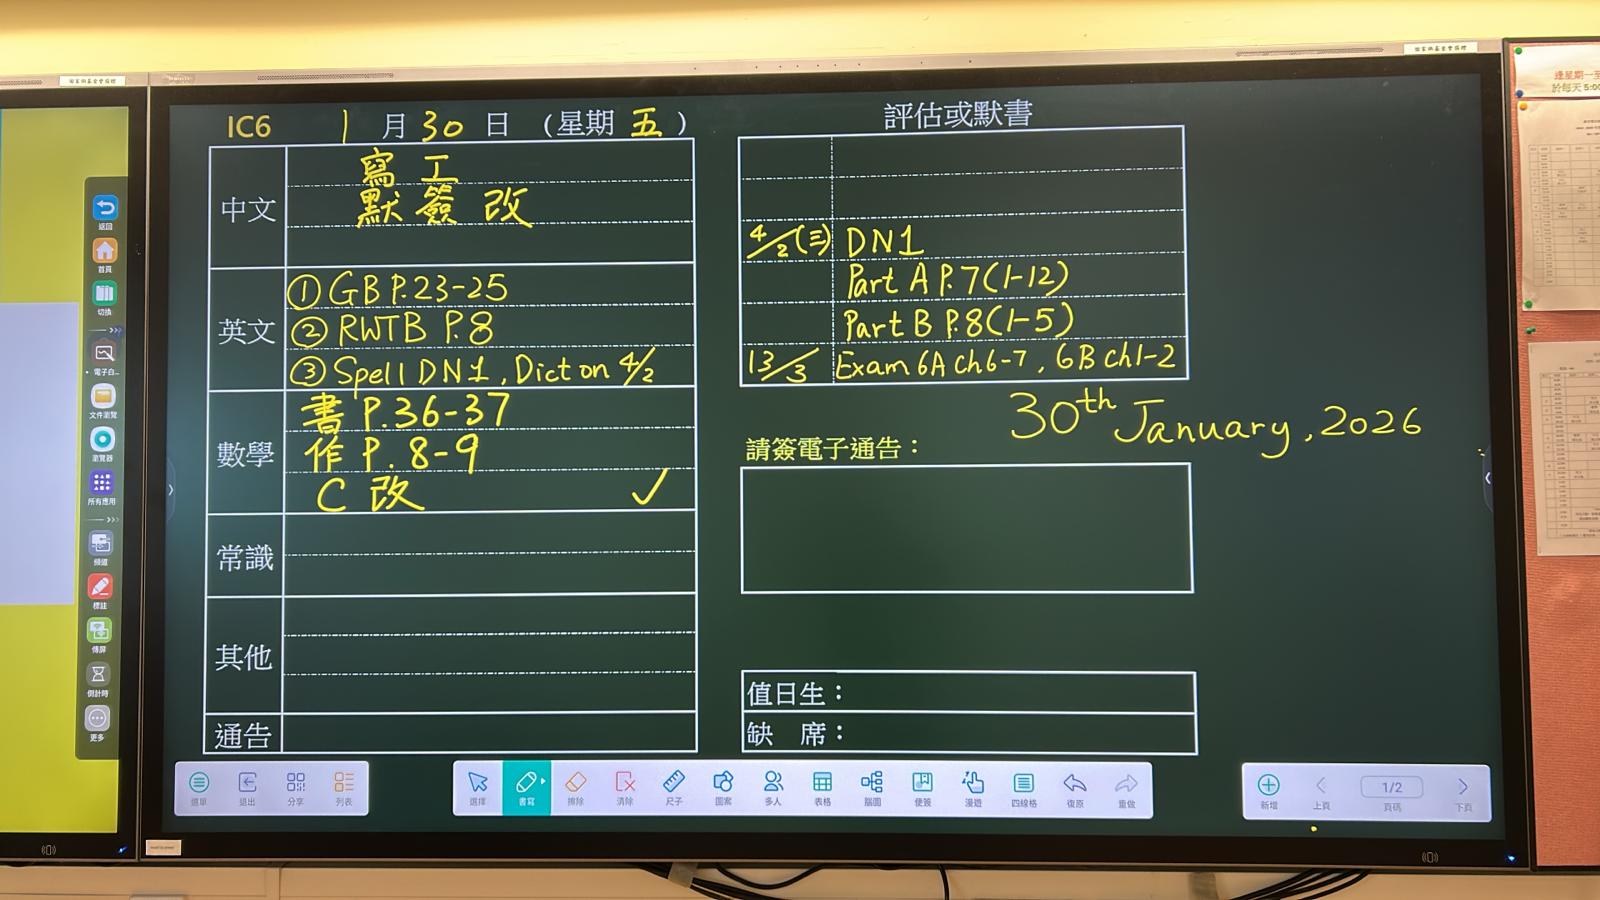 IC6 1月30日 (星期五)
中文
寫工
默簽改
英文
① GB P.23-25
② RWTB P.8
③ Spell DN1, Dict on 4/2
數學
書 P.36-37
作 P.8-9
C 改 ✓
常識
其他
通告
評估或默書
4/2(三) DN1
Part A P.7(1-12)
Part B P.8(1-5)
13/3 Exam 6A ch6-7, 6B ch1-2
30th January, 2026
請簽電子通告：
值日生：
缺 席：
返回
首頁
切換
電子白...
文件瀏覽
瀏覽器
所有應用
頻道
標註
傳屏
倒計時
更多
選單 退出 分享 列表
選擇 書寫 擦除 清除 尺子 圖案 多人 表格 腦圖 便簽 漫遊 四線格 復原 重做
新增 上頁 1/2 頁碼 下頁
逢星期一至
於每天 5:00